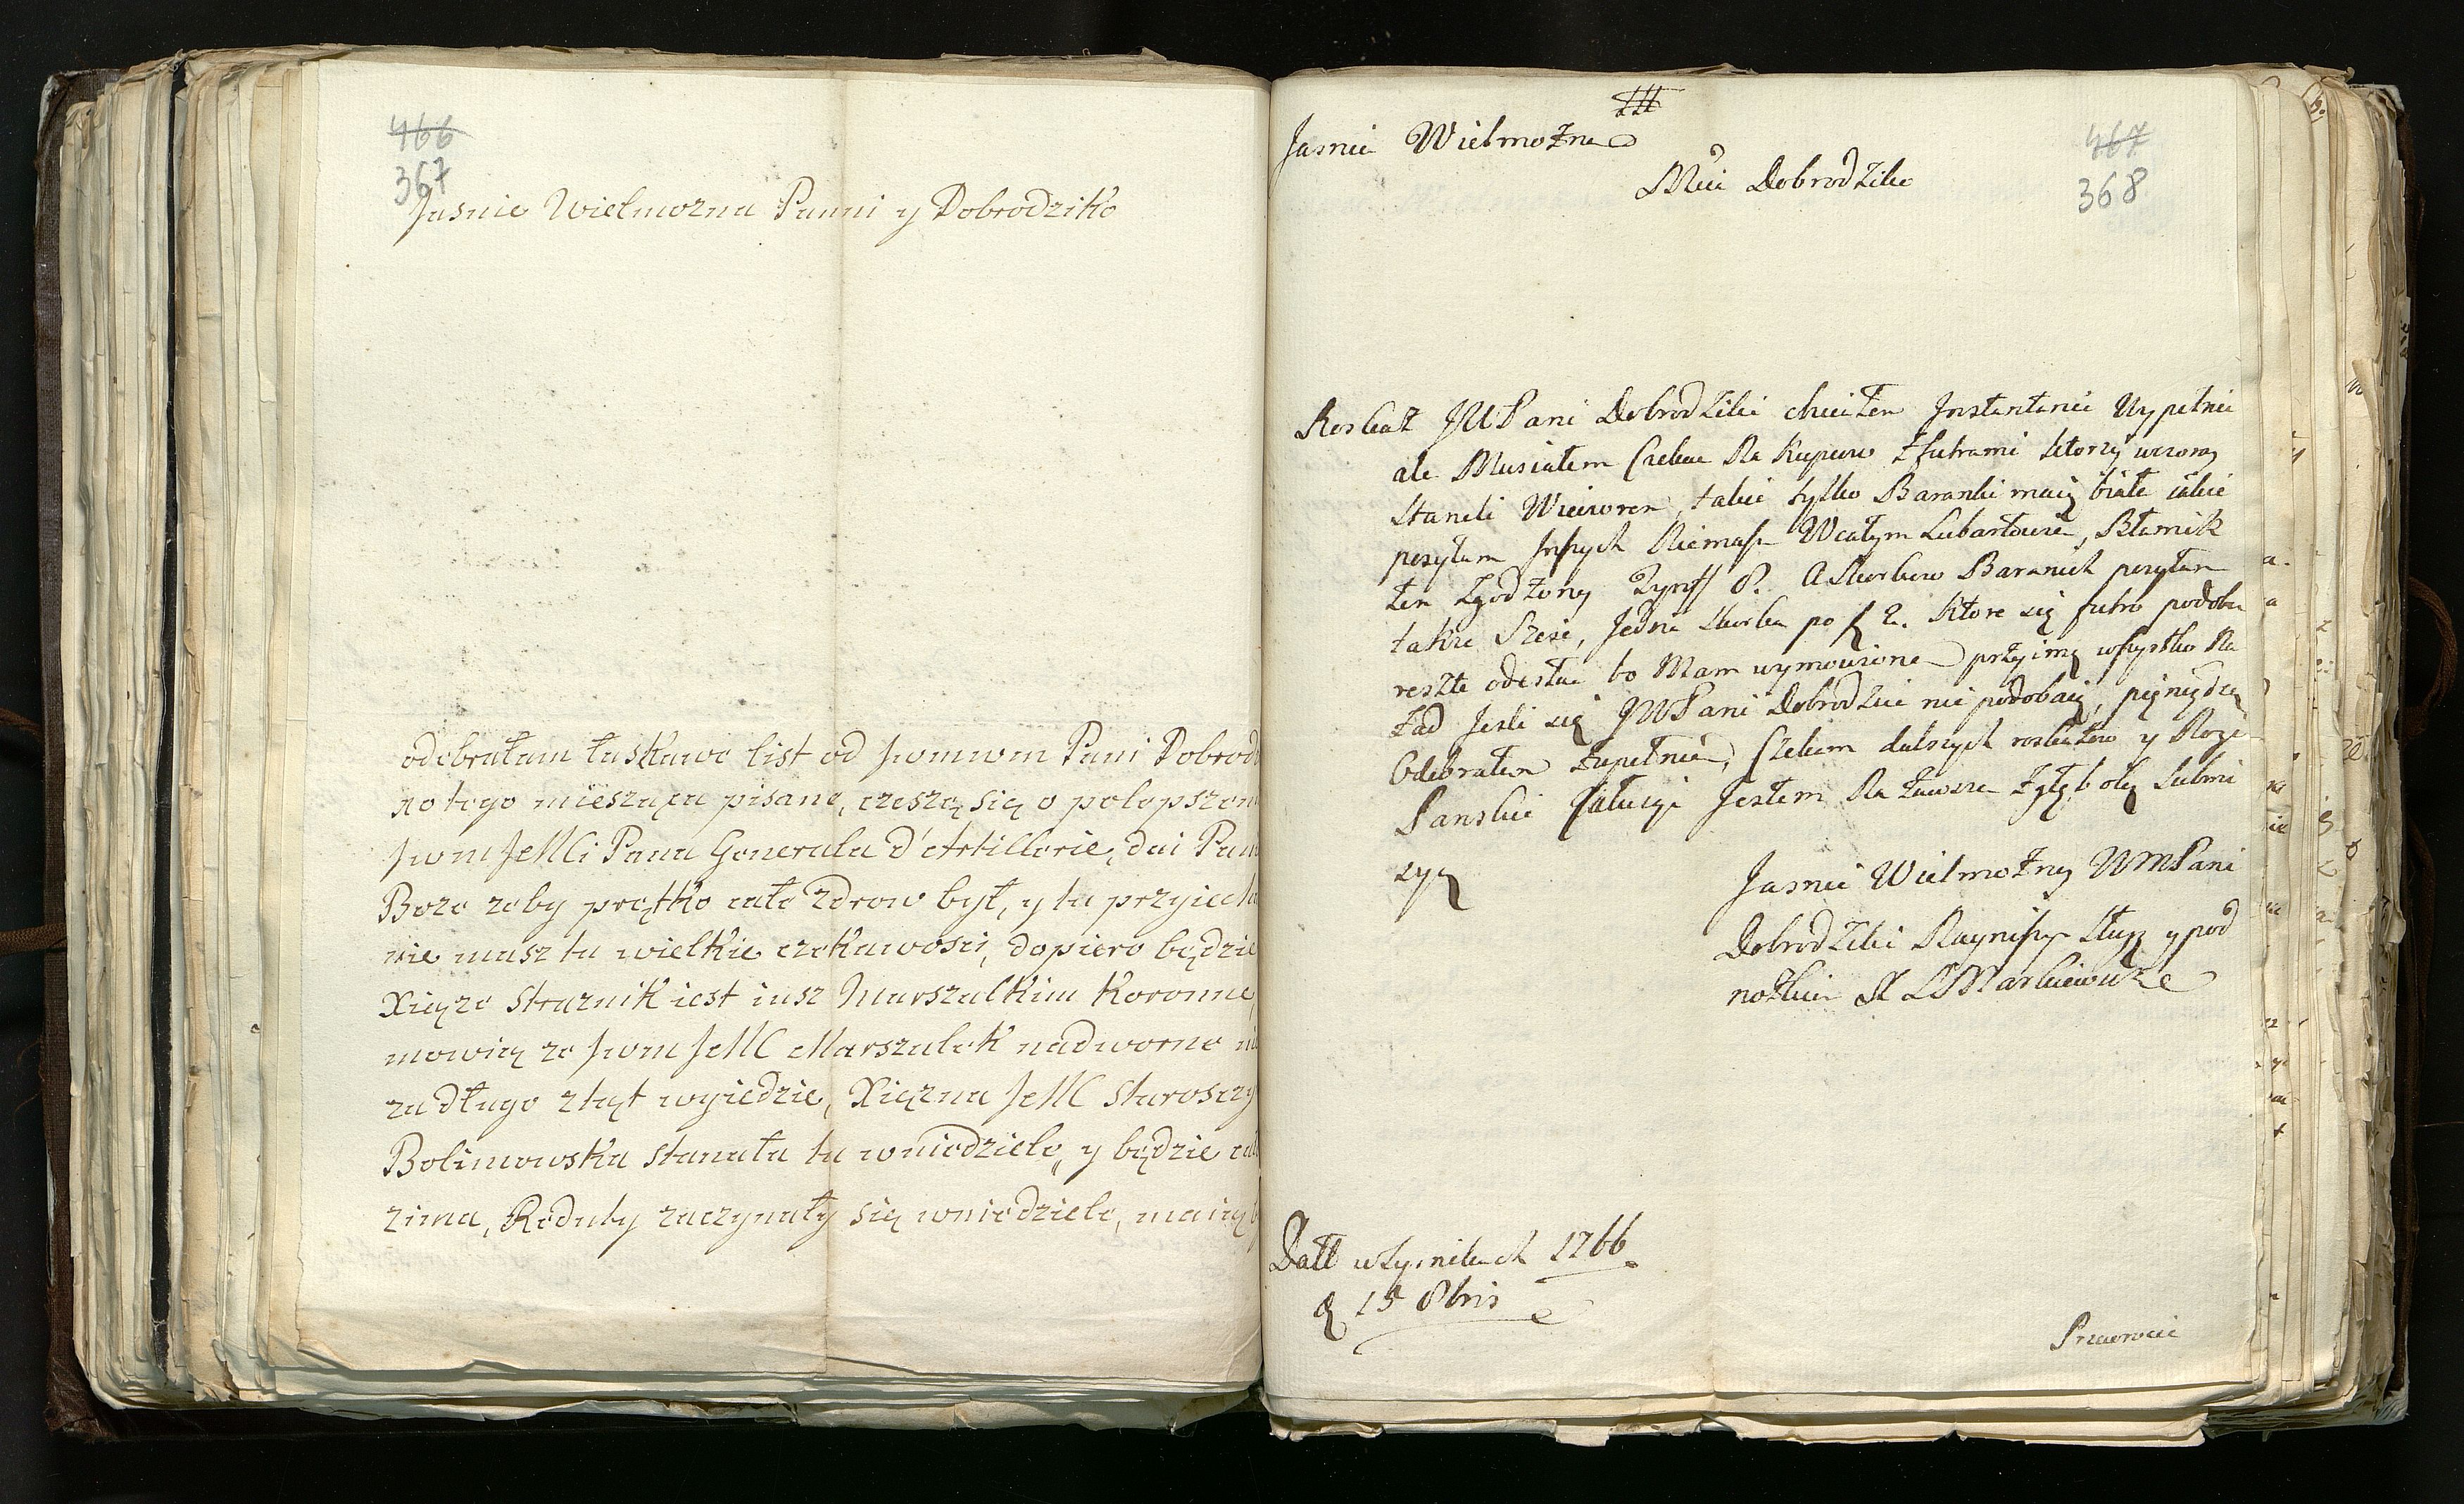 466
367
Jasnie Wielmozna Panni y Dobrodziko
odebrałam łaskawe list od jwmwm Pani Dobrod
no tego miesząca pisane, czeszą się o polopszon
jwm JeMCi Pana Generała d'Artillerie, dai Pan
Boze zeby prętko całe zdrow był, y tu przyiecha
nie masz tu wielkie czekawosci, dopiero będzie
Xiąze straznik iest iusz Marszalkim Koronne
mowią ze jwm JeMC Marszalek nadworne ni
za długo ztąt wyiedzie, Xięzna JeMC Starosczy
Bolimowska stanała tu wniedziele, y będzie cał
zima, Reduty zaczynały się wniedziele, maią
Jasnie Wielmozna
Mcia Dobrodziko
467
368
Roskaz JWPani Dobrodziki chciałem Instantanie Wypełnic
ale Musiałem Czekac Na Kupcow zfutrami ktorzy wczoray
Staneli Wieczorem, takie tylko Baranki maią białe iakie
posyłam Inszych Niemasz Wcałym Lubartowie, Błamik
ten Zgodzony Tynff 8. A Skorkow Baranich posyłam
także Szesc, Jedna skorka po f 2. Ktore się futro podoba
reszte odesłac bo Mam wymowione przyimą wszystko Na
zad Jesli się JWPani Dobrodzice nie podobaią, pięniądze
Odebrałem zupełnie, Czekam dalszych roskazow y
Panskie Jestem Na zawsze zgłęboką Submi
syą
Jasnie Wielmozny WMPani
Dobrodziki Naynizszy Sługa y pod
nożkiem Markiewicz
Datt 1766
d 15 8bris
Przewrocic